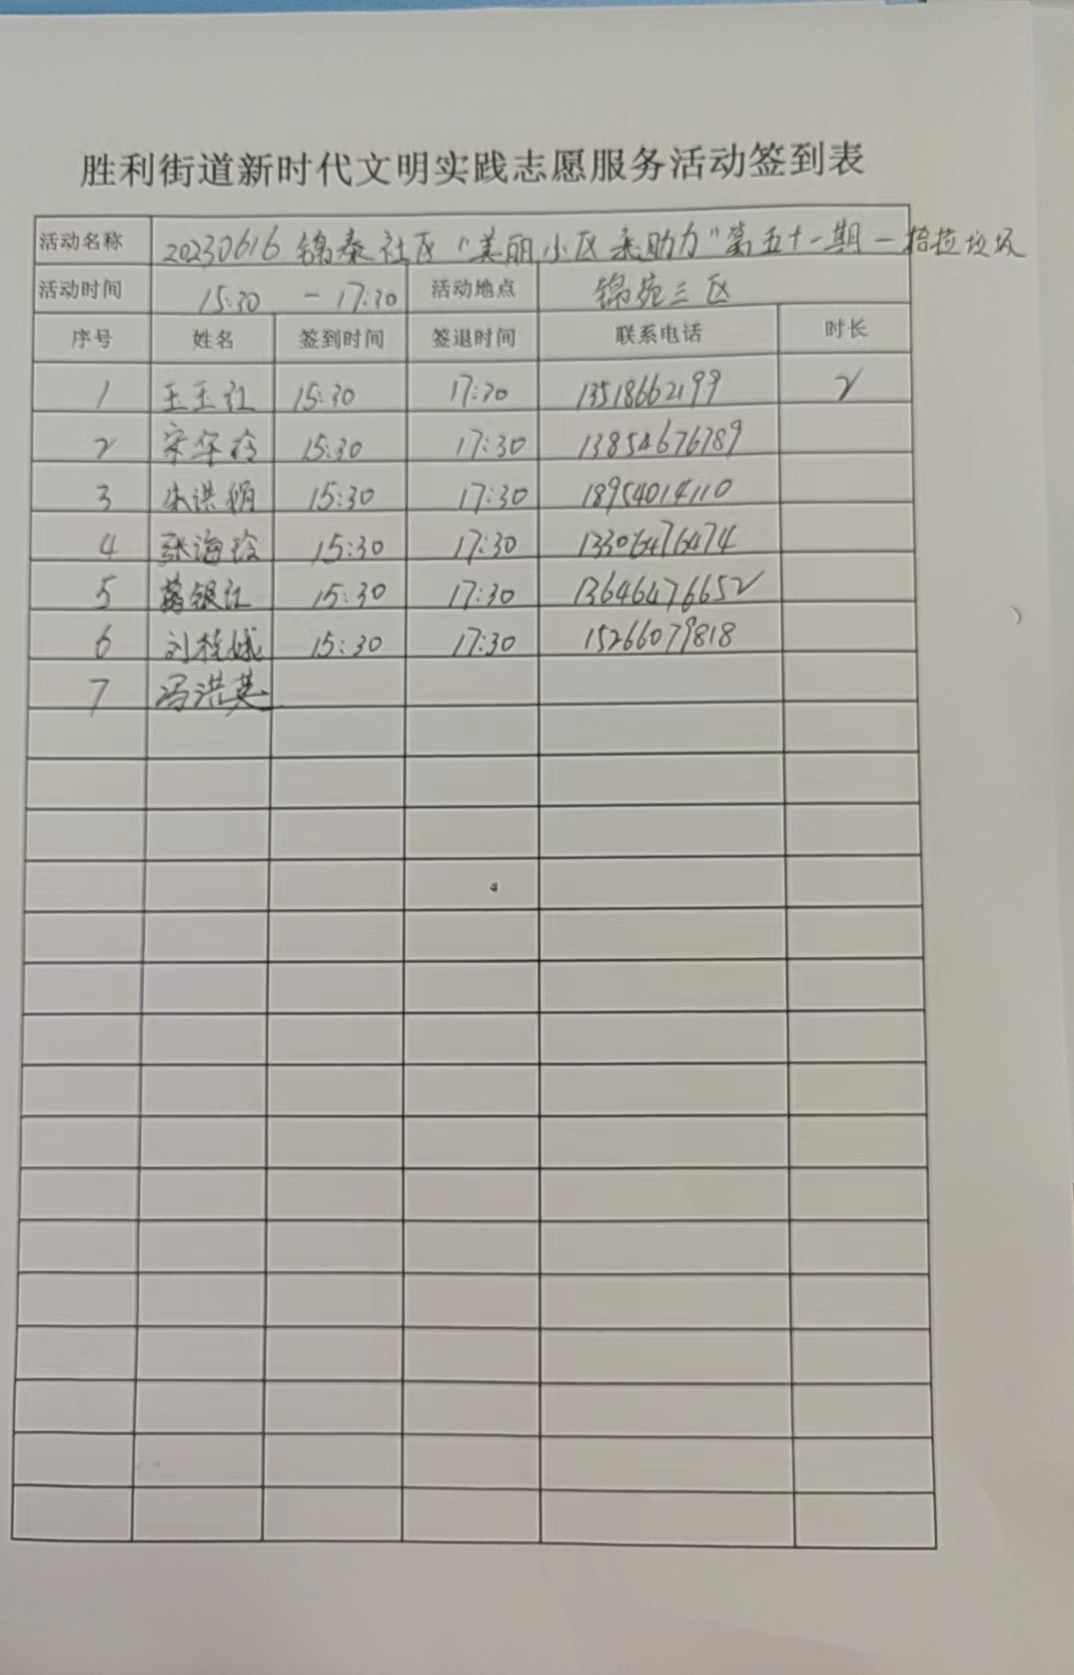 胜利街道新时代文明实践志愿服务活动签到表
活动名称 20230616 锦泰社区“美丽小区来助力”第五十一期－捡拉垃圾
活动时间 15:30 - 17:30 活动地点 锦苑三区
序号 姓名 签到时间 签退时间 联系电话 时长
1 王玉红 15:30 17:30 13518662199 2
2 宋华玲 15:30 17:30 13854676789
3 朱洪娟 15:30 17:30 18954014110
4 张海玲 15:30 17:30 13306476474
5 葛银红 15:30 17:30 13646476652
6 刘桂娥 15:30 17:30 15266079818
7 冯洪英